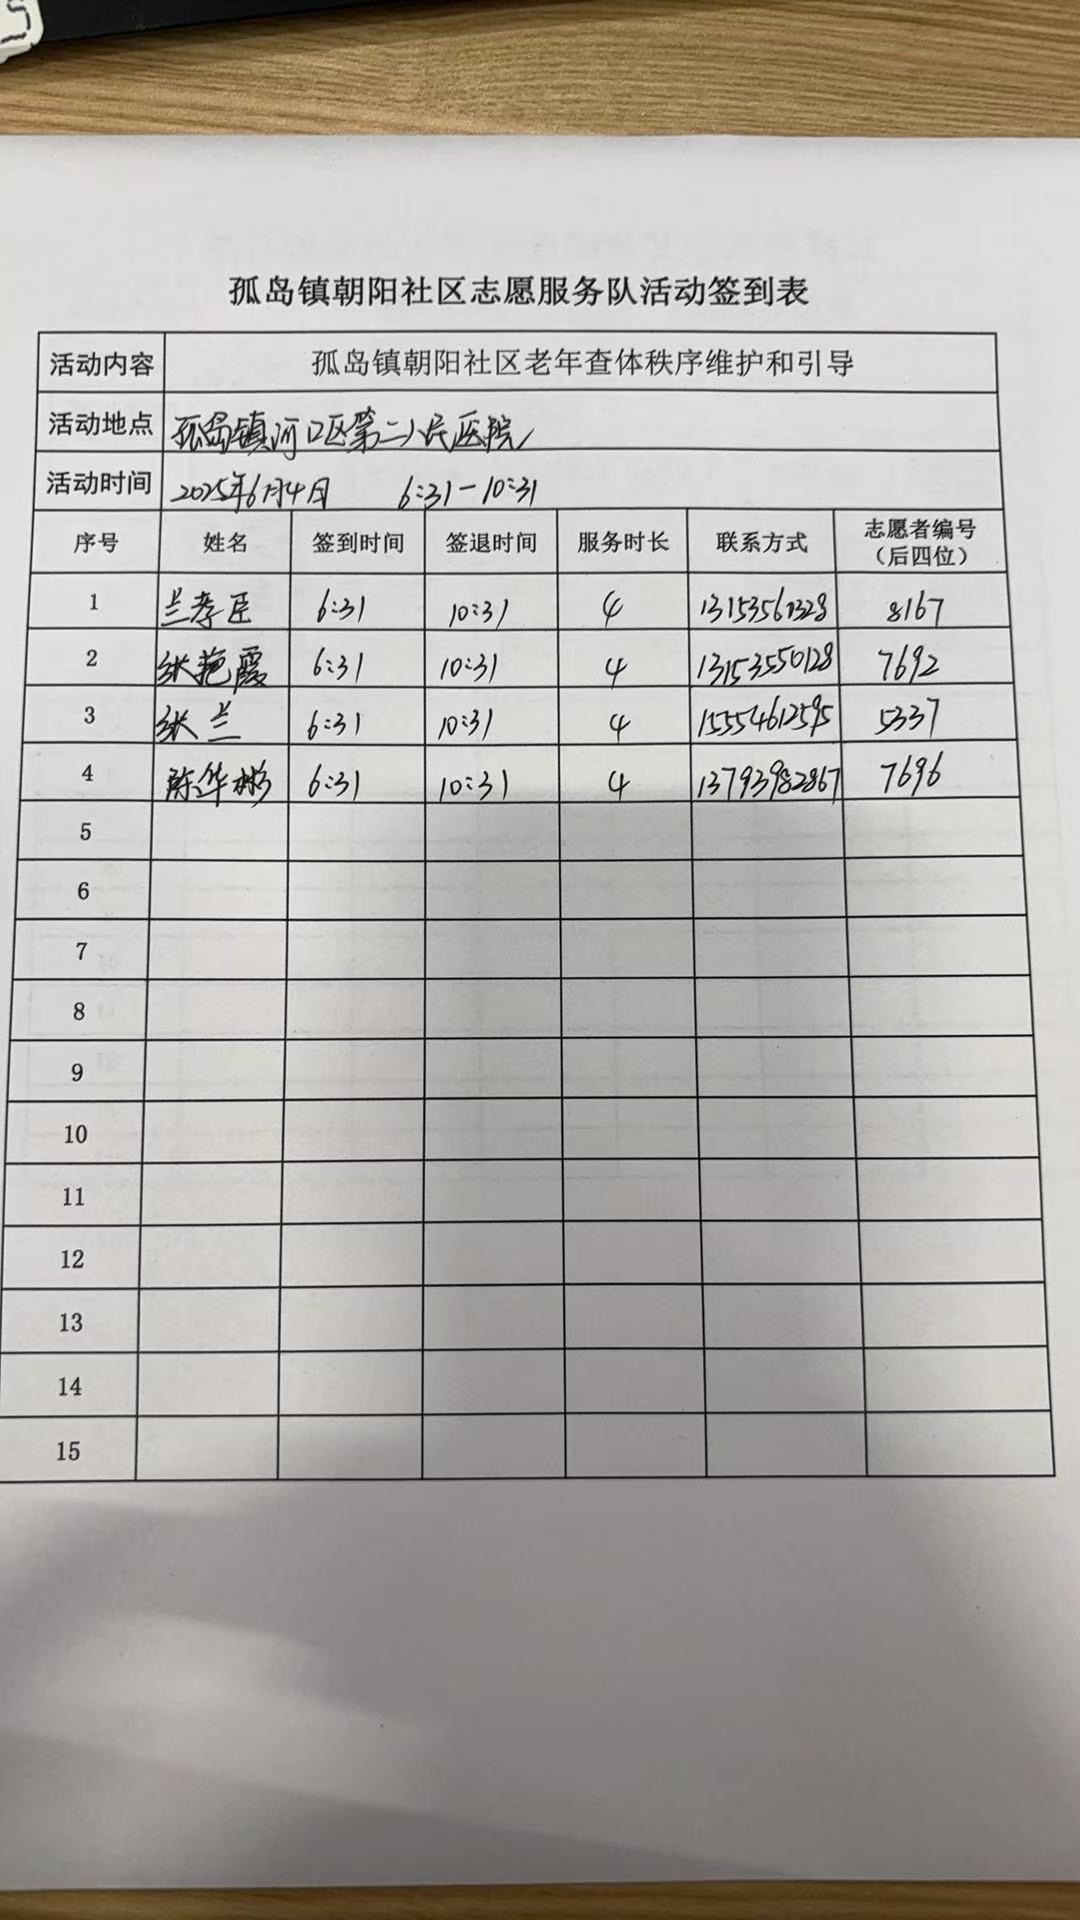 孤岛镇朝阳社区志愿服务队活动签到表
活动内容 孤岛镇朝阳社区老年查体秩序维护和引导
活动地点 孤岛镇河口区第二人民医院
活动时间 2025年6月4日 6:31-10:31
序号 姓名 签到时间 签退时间 服务时长 联系方式 志愿者编号（后四位）
1 兰孝臣 6:31 10:31 4 13153561328 8167
2 张艳霞 6:31 10:31 4 13153550128 7692
3 张兰 6:31 10:31 4 15554612595 5337
4 陈华彬 6:31 10:31 4 13793982867 7696
5
6
7
8
9
10
11
12
13
14
15